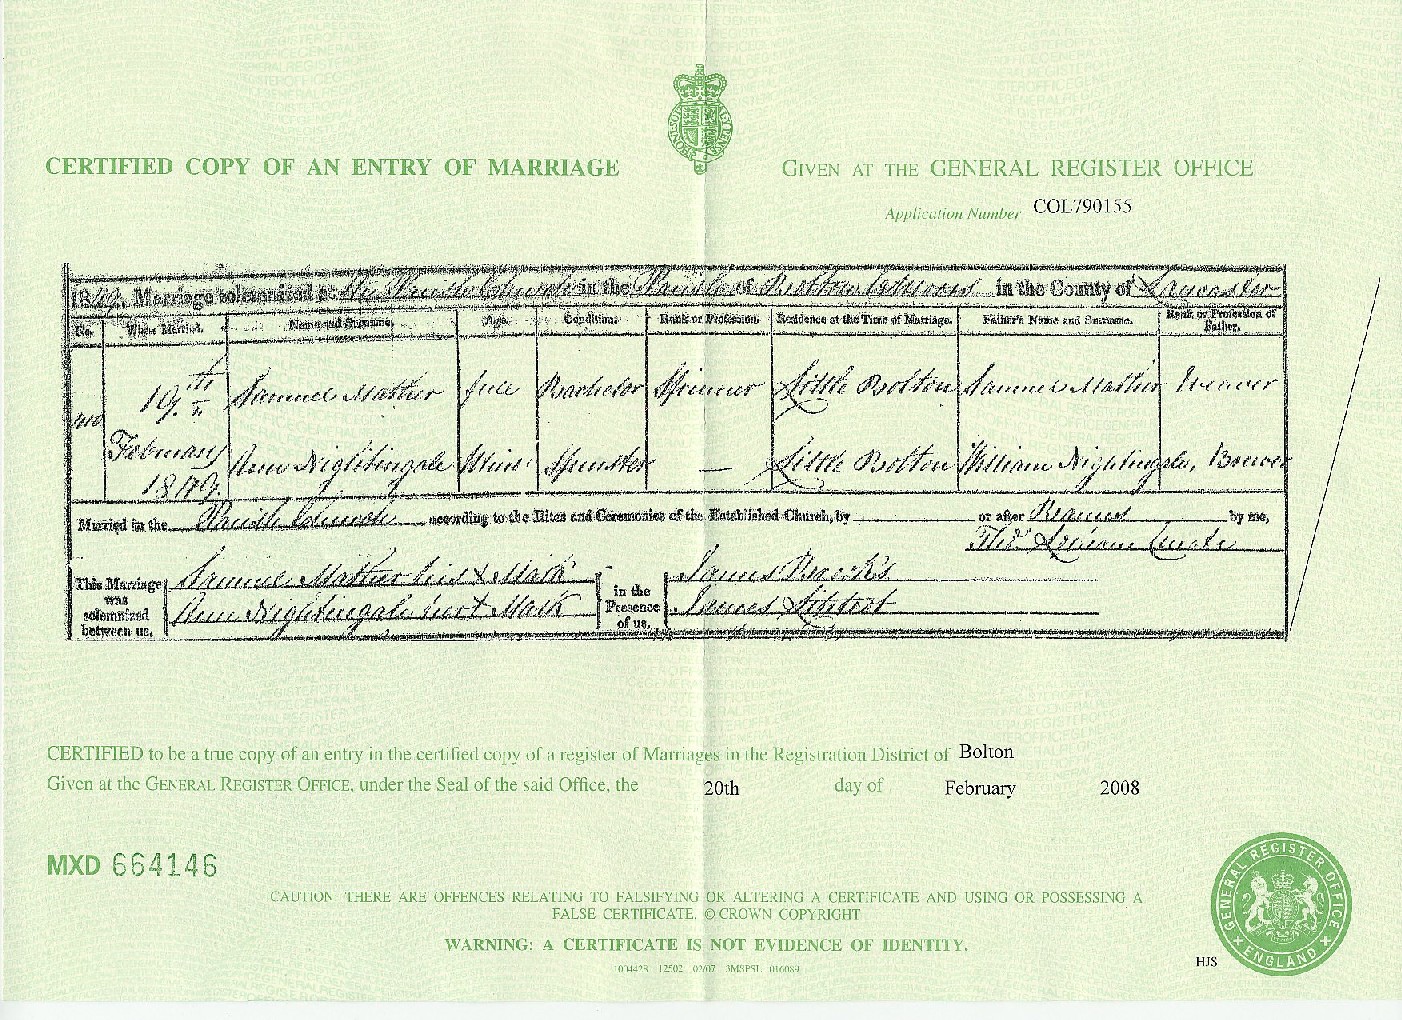 CERTIFIED COPY OF AN ENTRY OF MARRIAGE
GIVEN AT THE GENERAL REGISTER OFFICE
Application Number COL790155
1849. Marriage solemnized at the Parish Church in the Parish of Bolton in the County of Lancaster
No. When Married. Name and Surname. Age. Condition. Rank or Profession. Residence at the Time of Marriage. Father's Name and Surname. Rank or Profession of Father.
19th February 1849. Samuel Mather full Bachelor Spinner Little Bolton Samuel Mather Weaver
Ann Nightingale Minor Spinster — Little Bolton William Nightingale, Brewer
Married in the Parish Church according to the Rites and Ceremonies of the Established Church, by or after Banns by me,
This Marriage was solemnized between us, Samuel Mather his x Mark in the Presence of us, James
Ann Nightingale her x Mark James
CERTIFIED to be a true copy of an entry in the certified copy of a register of Marriages in the Registration District of Bolton
Given at the GENERAL REGISTER OFFICE, under the Seal of the said Office, the 20th day of February 2008
MXD 664146
CAUTION THERE ARE OFFENCES RELATING TO FALSIFYING OR ALTERING A CERTIFICATE AND USING OR POSSESSING A
FALSE CERTIFICATE. © CROWN COPYRIGHT
WARNING: A CERTIFICATE IS NOT EVIDENCE OF IDENTITY.
GENERAL REGISTER OFFICE
ENGLAND
HJS